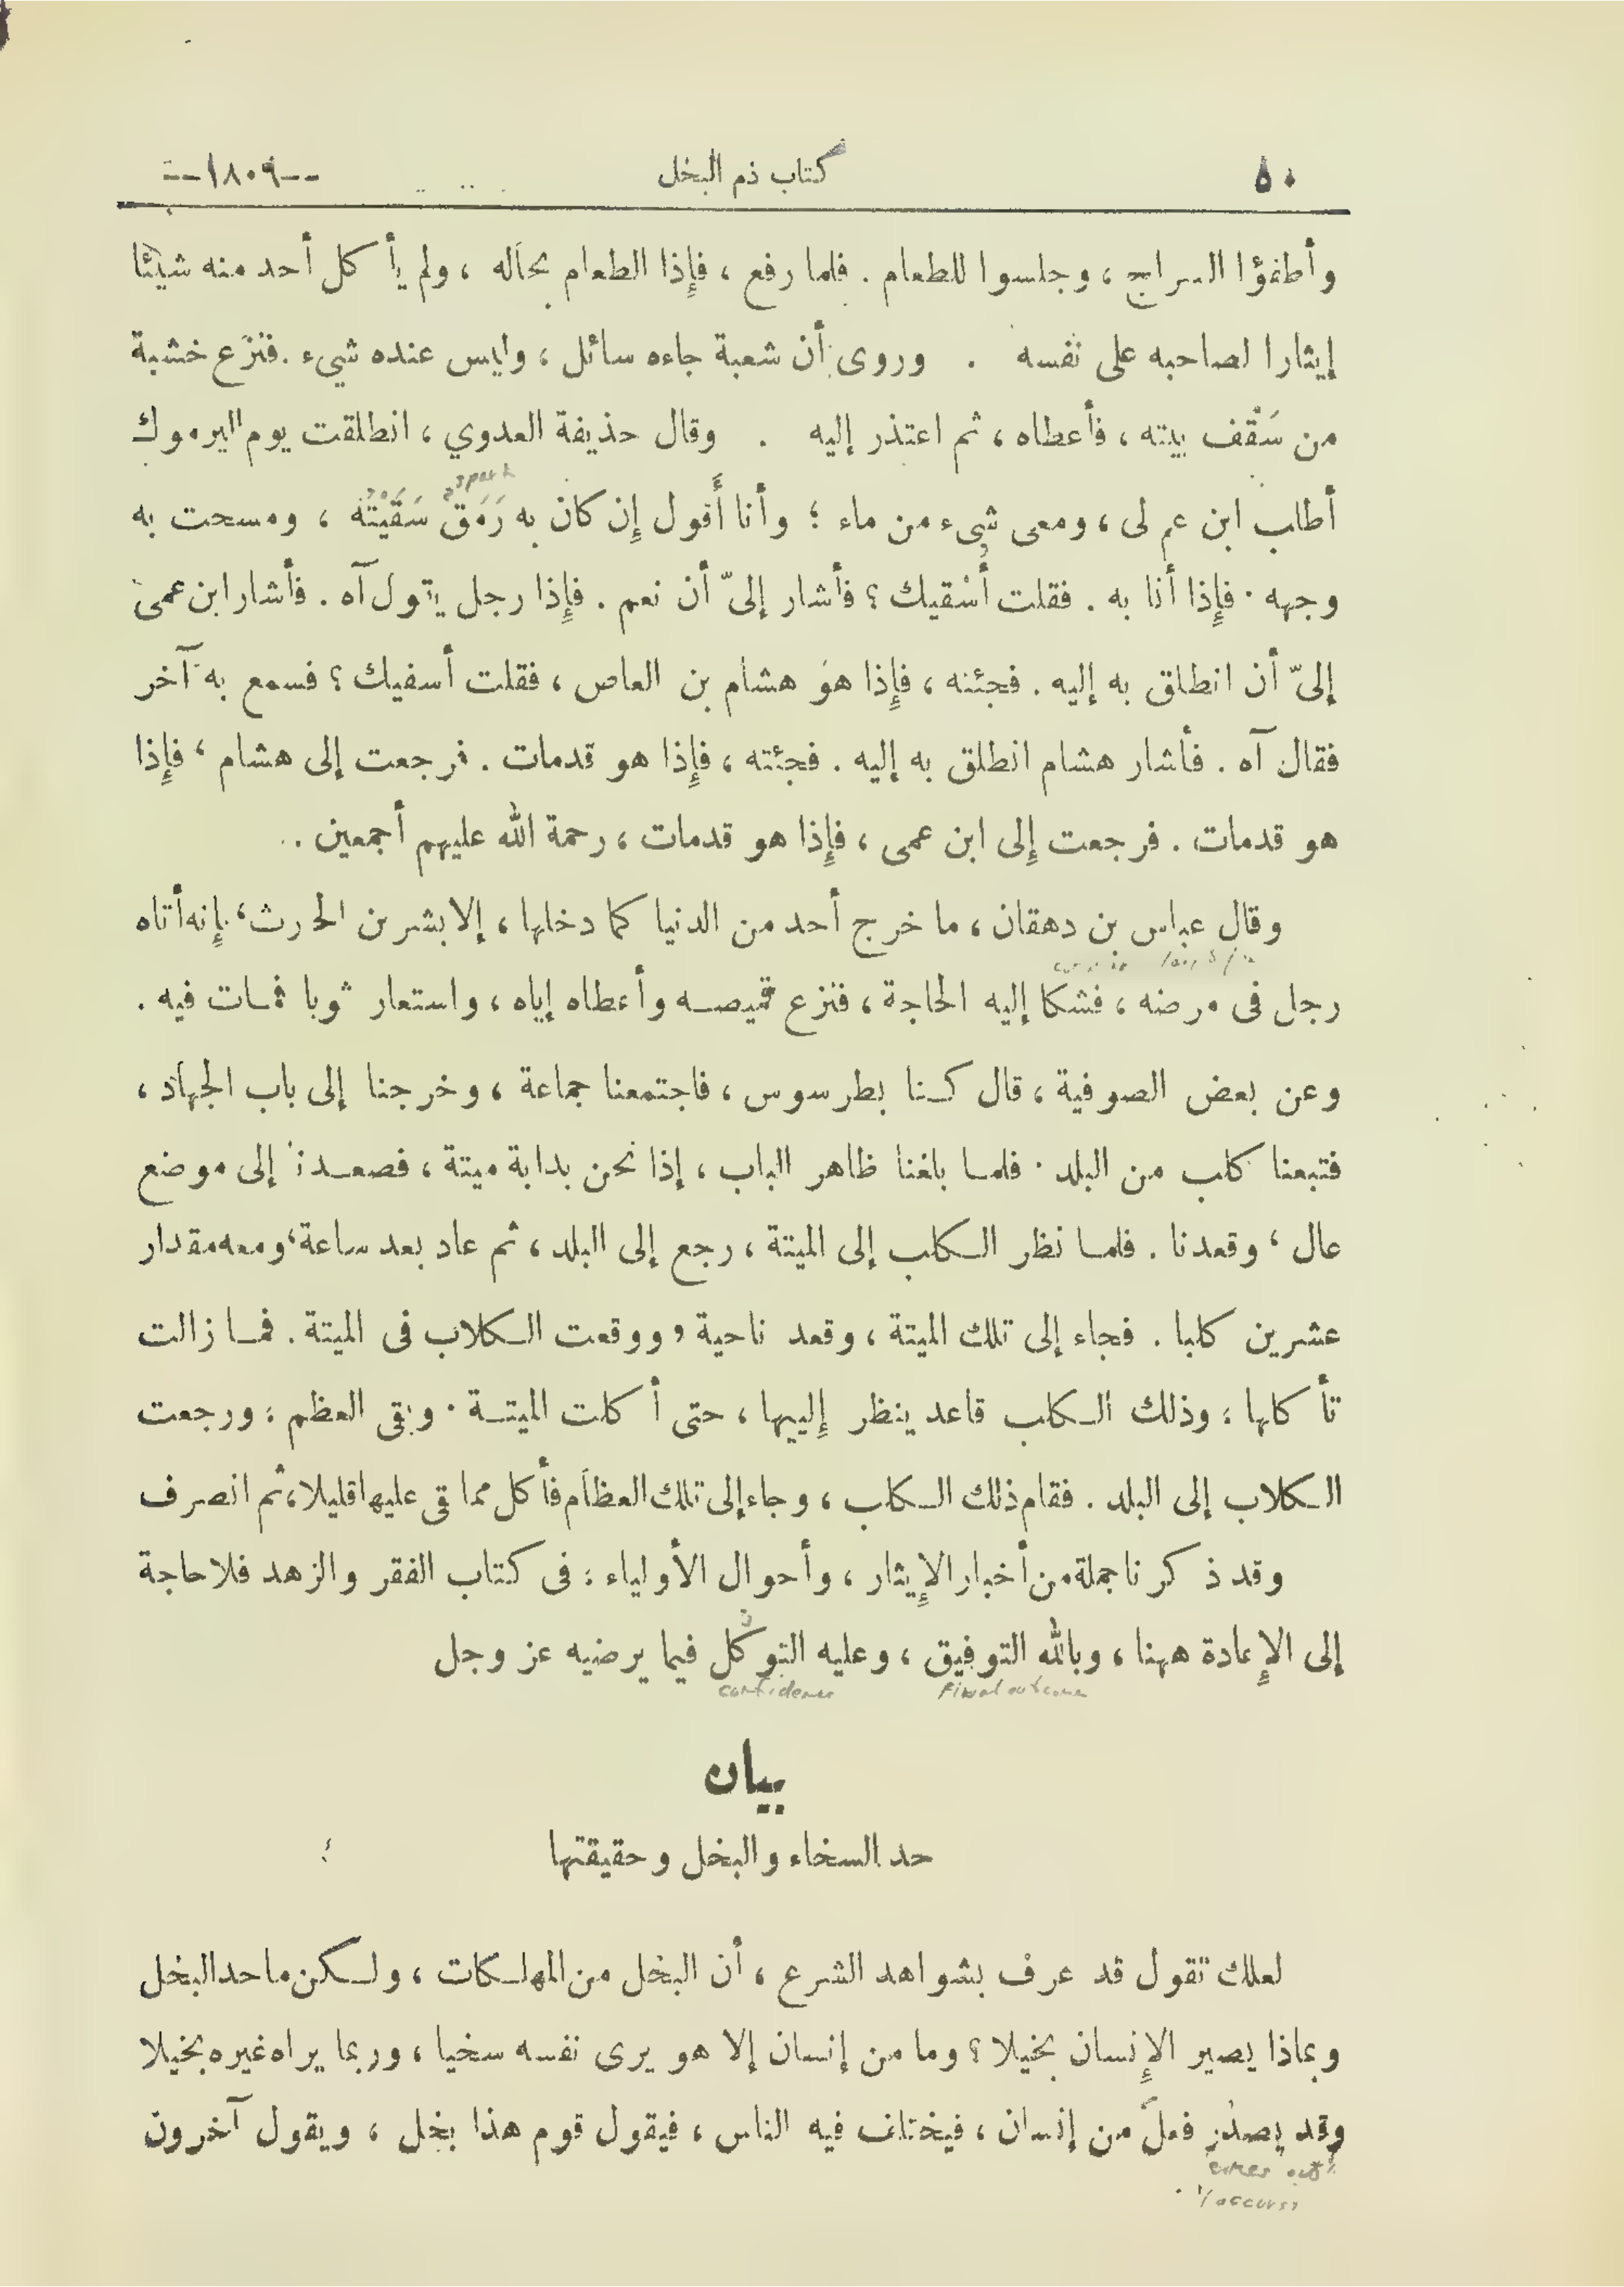 ٥٠ كتاب ذم البخل --١٨٠٩--
وأطفؤا السراج ، وجلسوا للطعام . فلما رفع ، فإذا الطعام بحاله ، ولم يأكل أحد منه شيئا
إيثارا لصاحبه على نفسه . وروى أن شعبة جاءه سائل ، وليس عنده شيء . فنزع خشبة
من سَقْف بيته ، فأعطاه ، ثم اعتذر إليه . وقال حذيفة العدوي ، انطلقت يوم اليرموك
spark
أطلب ابن عم لى ، ومعى شىء من ماء ؛ وأنا أَقول إن كان به رَمَق سَقَيْتُه ، ومسحت به
وجهه . فإذا أنا به . فقلت أُسْقيك ؟ فأشار إلىّ أن نعم . فإذا رجل يقول آه . فأشار ابن عمى
إلىّ أن انطلق به إليه . فجئته ، فإذا هو هشام بن العاص ، فقلت أسقيك ؟ فسمع به آخر
فقال آه . فأشار هشام انطلق به إليه . فجئته ، فإذا هو قدمات . فرجعت إلى هشام ، فإذا
هو قدمات . فرجعت إلى ابن عمى ، فإذا هو قدمات ، رحمة الله عليهم أجمعين .
وقال عباس بن دهقان ، ما خرج أحد من الدنيا كما دخلها ، إلا بشر بن الحرث ، فإنه أتاه
رجل فى مرضه ، فشكا إليه الحاجة ، فنزع قميصه وأعطاه إياه ، واستعار ثوبا فمات فيه .
وعن بعض الصوفية ، قال كنا بطرسوس ، فاجتمعنا جماعة ، وخرجنا إلى باب الجهاد ،
فتبعنا كلب من البلد . فلما بلغنا ظاهر الباب ، إذا نحن بدابة ميتة ، فصعدنا إلى موضع
عال ، وقعدنا . فلما نظر الكلب إلى الميتة ، رجع إلى البلد ، ثم عاد بعد ساعة ، ومعه مقدار
عشرين كلبا . فجاء إلى تلك الميتة ، وقعد ناحية ، ووقعت الكلاب فى الميتة . فما زالت
تأكلها ، وذلك الكلب قاعد ينظر إليها ، حتى أكلت الميتة . وبقى العظم ، ورجعت
الكلاب إلى البلد . فقام ذلك الكلب ، وجاء إلى تلك العظام فأكل مما بقى عليها قليلا ، ثم انصرف
وقد ذكرنا جملة من أخبار الإيثار ، وأحوال الأولياء ، فى كتاب الفقر والزهد فلا حاجة
إلى الإعادة ههنا ، وبالله التوفيق ، وعليه التوكل فيما يرضيه عز وجل
confidence final outcome
بيان
حد السخاء والبخل وحقيقتها
لعلك تقول قد عرف بشواهد الشرع ، أن البخل من المهلكات ، ولكن ما حد البخل
وبماذا يصير الإنسان بخيلا ؟ وما من إنسان إلا هو يرى نفسه سخيا ، وربما يراه غيره بخيلا
وقد يصدُر فعل من إنسان ، فيختلف فيه الناس ، فيقول قوم هذا بخل ، ويقول آخرون
comes out
occurs